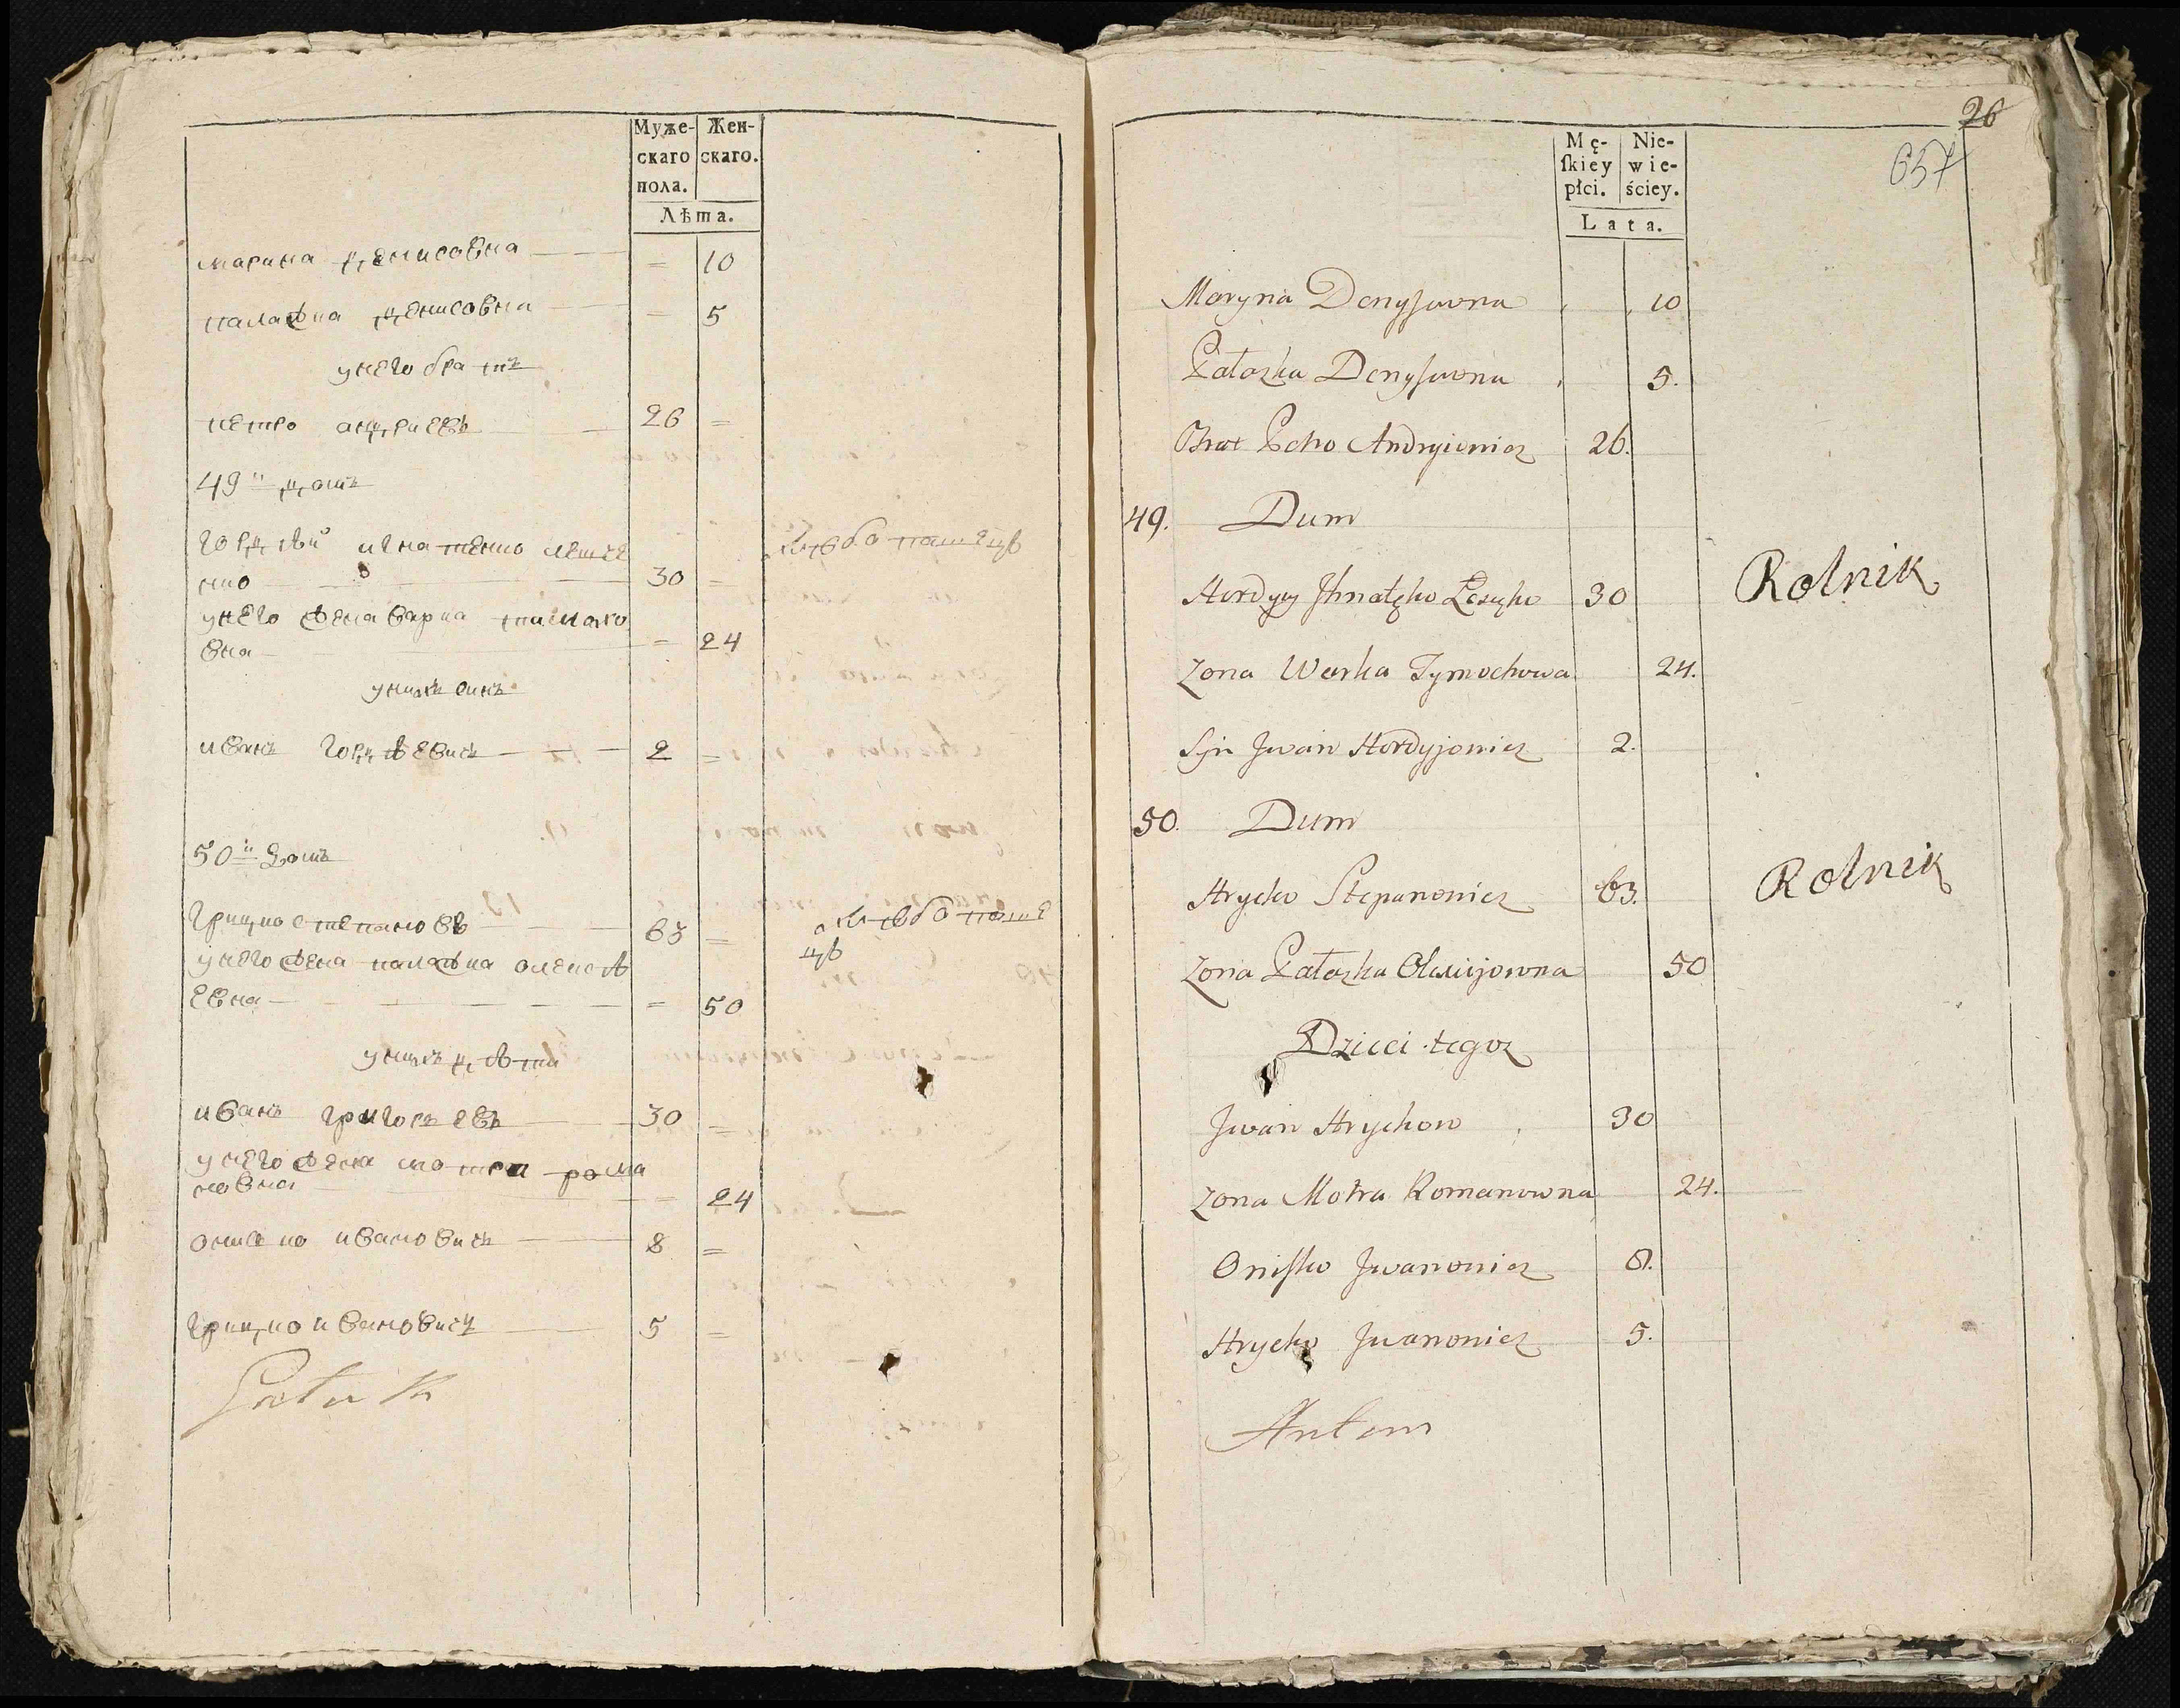 Муже-
скаго
пола.
Жен-
скаго.
Лѣта.
марина денисовна — = 10
палажка денисовна — = 5
унего братъ
петро андриевъ — 26 =
49й домъ
гордѣй игнатенко лещѐ
нко — 30 = хлѣбопашецъ
унего жена варка тимахо
вна — = 24
унихъ синъ
иванъ гордѣевичъ — 2 =
50й домъ
грицко степановъ — 63 = хлѣбопаше
цъ
унего жена палажка олексѣ
евна — = 50
унихъ дѣти
иванъ григорьевъ — 30 =
унего жена мотра рома
новна — = 24
ониско ивановичъ — 8 =
грицко ивановичъ — 5 =
26
657
Mę-
ſkiey
płci.
Nie-
wie-
ściey.
Lata.
Maryna Denysuwna 10
Pałazka Denysuwna 5.
Brat Petro Andryiewicz 26.
49. Dum
Hordyy Ihnatęko Leszęko 30 Rolnik
Zona Warka Tymochowa 24.
Syn Jwan Hordyjowicz 2.
50. Dum
Hrycko Stepanowicz 63. Rolnik
Zona Pałazka Olexijowna 50
Dzieci tegoz
Jwan Hryckow 30
Zona Motra Romanowna 24.
Oniſko Jwanowicz 8.
Hrycko Jwanowicz 5.